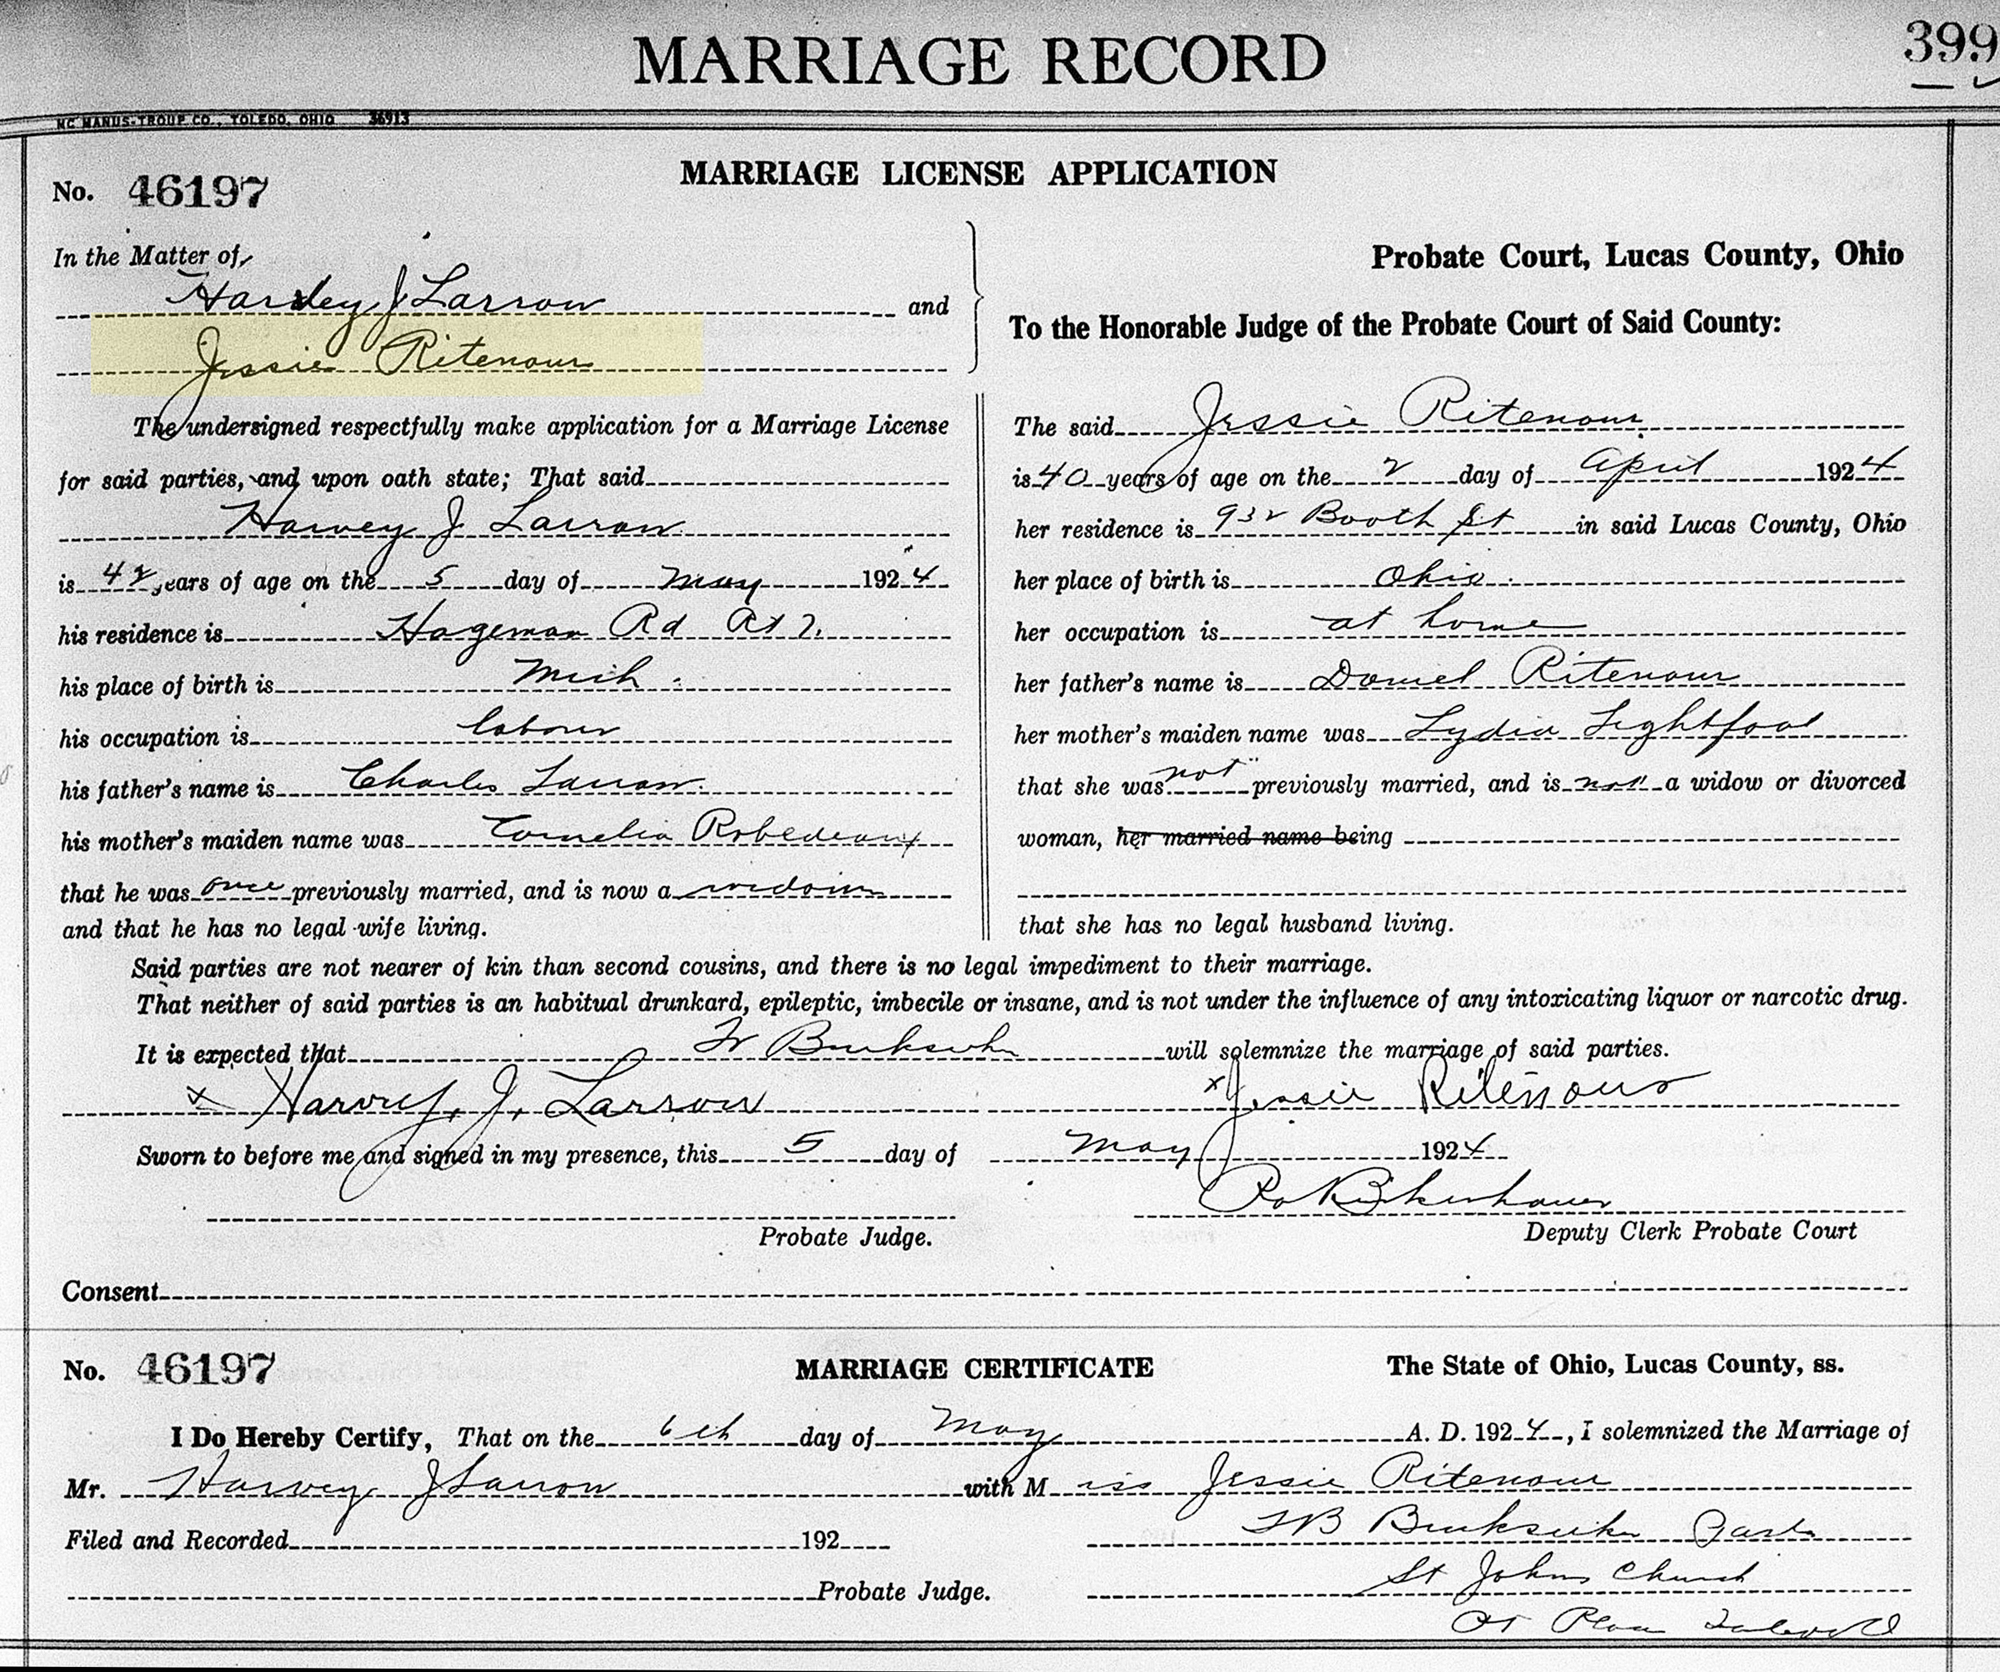 MARRIAGE RECORD
399
MC MANUS-TROUP CO., TOLEDO, OHIO 36913
MARRIAGE LICENSE APPLICATION
No. 46197
In the Matter of
Harvey J Larrow and
Jessie Ritenour
Probate Court, Lucas County, Ohio
To the Honorable Judge of the Probate Court of Said County:
The undersigned respectfully make application for a Marriage License
for said parties, and upon oath state; That said
Harvey J Larrow
is 42 years of age on the 5 day of May 1924
his residence is Hageman Rd Rt 7.
his place of birth is Mich.
his occupation is laborer
his father's name is Charles Larrow.
his mother's maiden name was Cornelia Robedeaux
that he was once previously married, and is now a widower
and that he has no legal wife living.
The said Jessie Ritenour
is 40 years of age on the 2 day of April 1924
her residence is 932 Booth St in said Lucas County, Ohio
her place of birth is Ohio.
her occupation is at home
her father's name is Daniel Ritenour
her mother's maiden name was Lydia Lightfoot
that she was not previously married, and is not a widow or divorced
woman, her married name being
that she has no legal husband living.
Said parties are not nearer of kin than second cousins, and there is no legal impediment to their marriage.
That neither of said parties is an habitual drunkard, epileptic, imbecile or insane, and is not under the influence of any intoxicating liquor or narcotic drug.
It is expected that will solemnize the marriage of said parties.
x Harvey. J. Larrow x Jessie Ritenour
Sworn to before me and signed in my presence, this 5 day of May 1924
Probate Judge. Deputy Clerk Probate Court
Consent
No. 46197 MARRIAGE CERTIFICATE The State of Ohio, Lucas County, ss.
I Do Hereby Certify, That on the 6th day of May A. D. 1924, I solemnized the Marriage of
Mr. Harvey J Larrow with Miss Jessie Ritenour
Filed and Recorded 192
Probate Judge.
St Johns Church